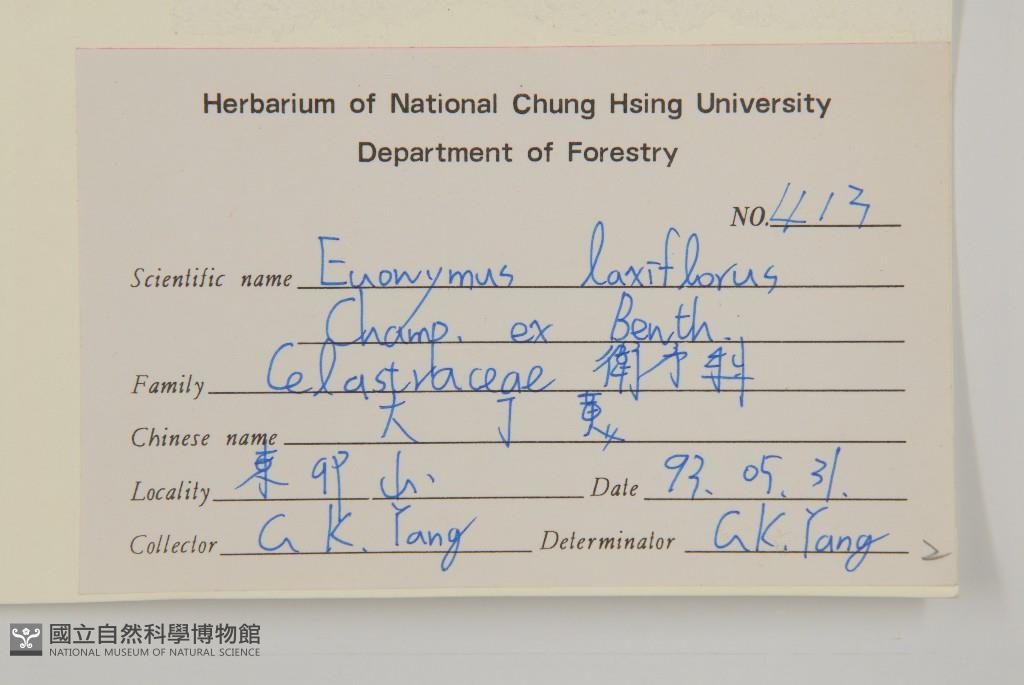 Herbarium of National Chung Hsing University
Department of Forestry
NO. 413
Scientific name Euonymus laxiflorus
Champ. ex Benth.
Family Celastraceae 衛矛科
Chinese name 大丁黃
Locality 東卯山
Date 93. 05. 31.
Collector G K. Yang
Determinator G K. Yang
2
國立自然科學博物館
NATIONAL MUSEUM OF NATURAL SCIENCE